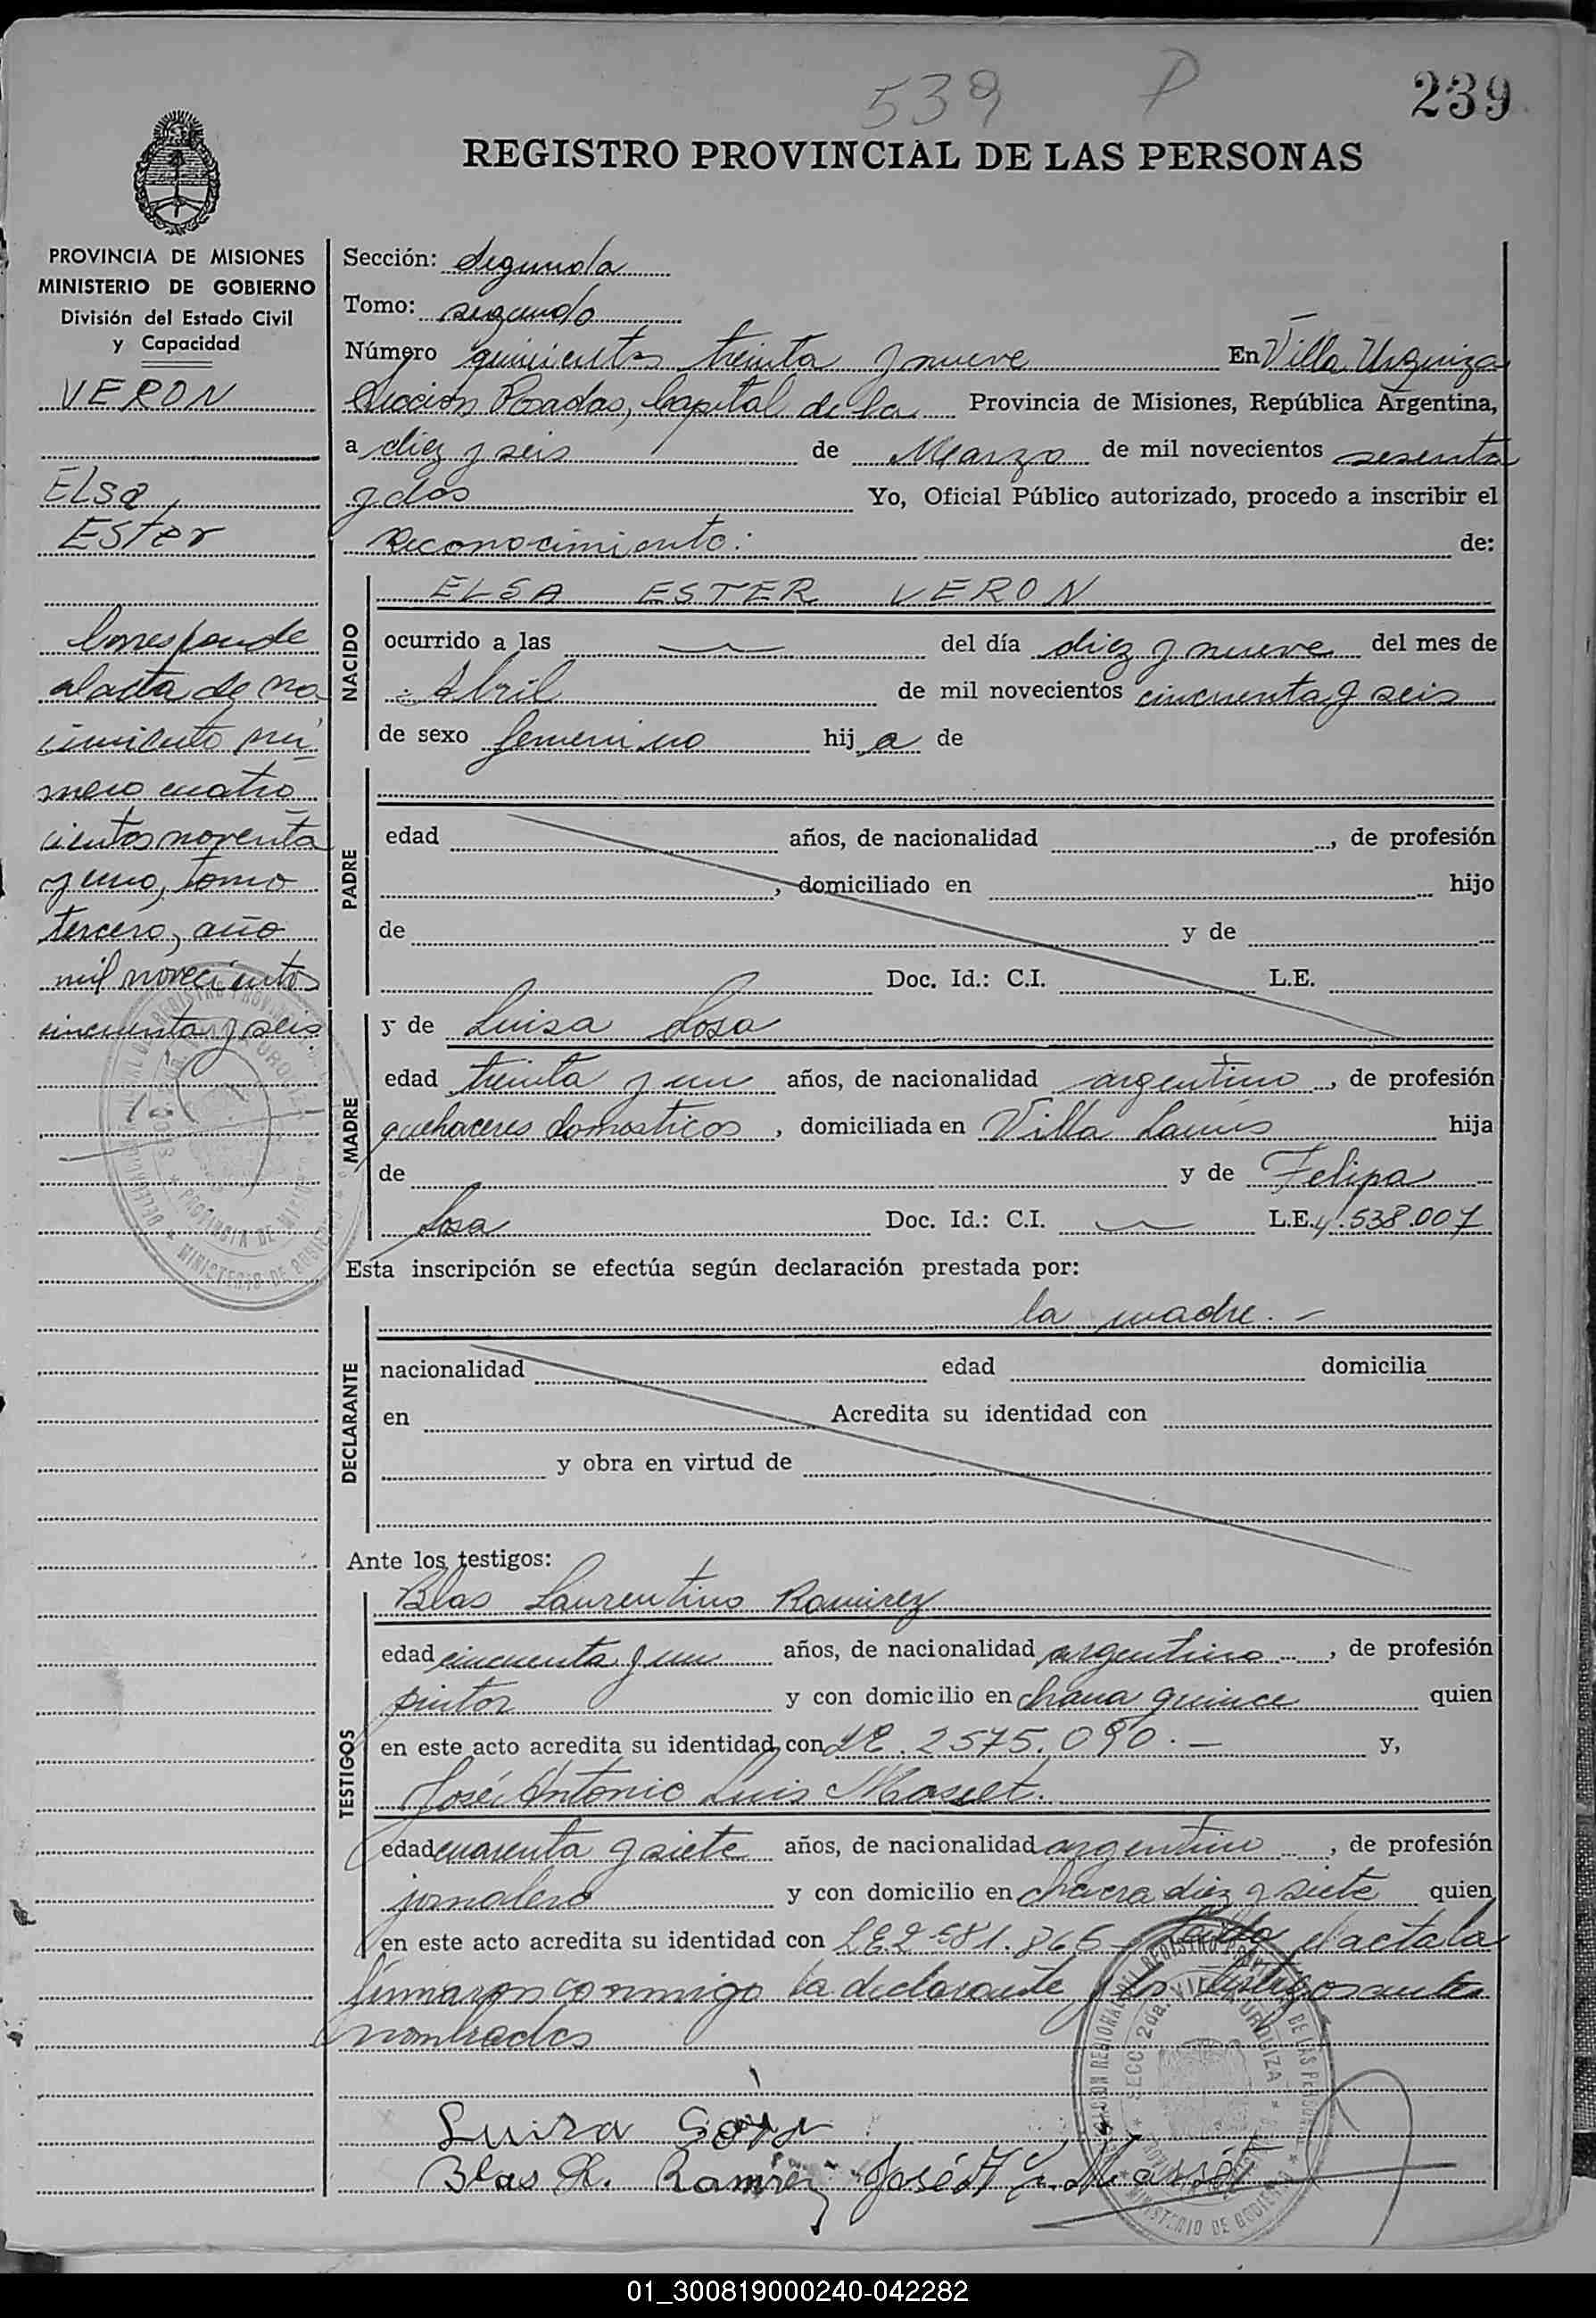 539 P 239
REGISTRO PROVINCIAL DE LAS PERSONAS
PROVINCIA DE MISIONES
MINISTERIO DE GOBIERNO
División del Estado Civil
y Capacidad
VERON
ELSA
ESTER
Corresponde
al acta de na
cimiento nú
mero cuatro
cientos noventa
y uno, tomo
tercero, año
mil novecientos
cincuenta y seis
Sección: Segunda
Tomo: segundo
Número quinientos treinta y nueve En Villa Urquiza
Sección Posadas, Capital de la Provincia de Misiones, República Argentina,
a diez y seis de Marzo de mil novecientos sesenta
y dos Yo, Oficial Público autorizado, procedo a inscribir el
Reconocimiento: de:
NACIDO
ELSA ESTER VERON
ocurrido a las — del día diez y nueve del mes de
Abril de mil novecientos cincuenta y seis
de sexo femenino hij a de
PADRE
edad años, de nacionalidad , de profesión
, domiciliado en hijo
de y de
Doc. Id.: C.I. L.E.
MADRE
y de Luisa Sosa
edad treinta y un años, de nacionalidad argentino, de profesión
quehaceres domesticos, domiciliada en Villa Lanús hija
de y de Felipa
Sosa Doc. Id.: C.I. — L.E. 4.538.007
Esta inscripción se efectúa según declaración prestada por:
DECLARANTE
la madre. -
nacionalidad edad domicilia
en Acredita su identidad con
y obra en virtud de
Ante los testigos:
TESTIGOS
Blas Laurentino Ramirez
edad cincuenta y un años, de nacionalidad argentino, de profesión
pintor y con domicilio en chacra quince quien
en este acto acredita su identidad con LE. 2575.090.- y,
José Antonio Luis Maslet.
edad cuarenta y siete años, de nacionalidad argentino, de profesión
jornalero y con domicilio en chacra diez y siete quien
en este acto acredita su identidad con L.E. 2 581.866 - Leída el acta la
firmaron conmigo la declarante y los testigos antes
nombrados
SECC. 2da. VILLA URQUIZA
MINISTERIO DE GOBIERNO
Luisa Sosa
Blas L. Ramirez José A. L.
01_300819000240-042282